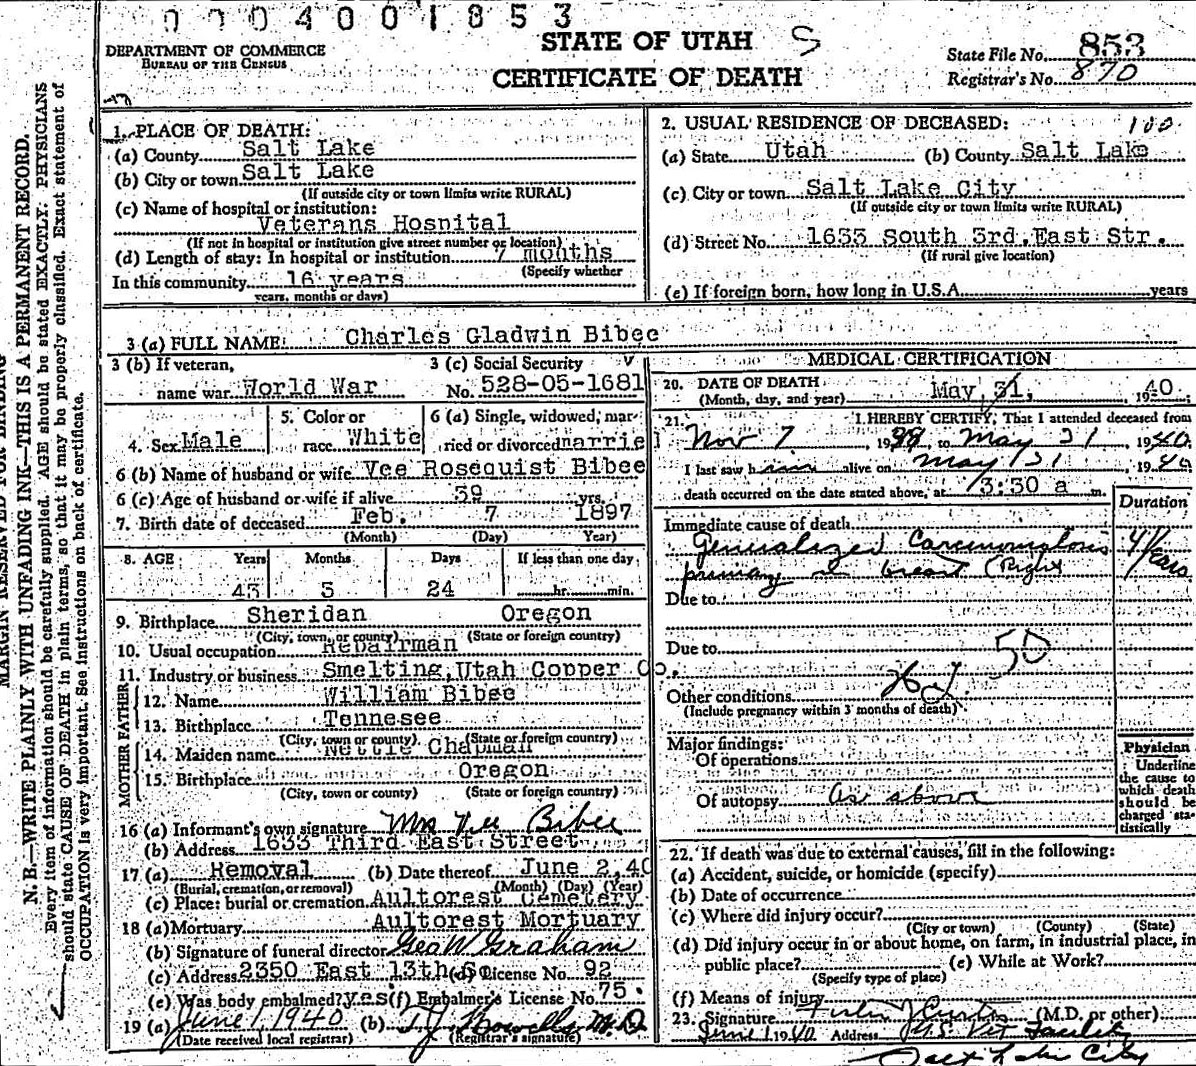 0004001853
STATE OF UTAH S
CERTIFICATE OF DEATH
DEPARTMENT OF COMMERCE
BUREAU OF THE CENSUS
State File No. 853
Registrar's No. 870
MARGIN RESERVED FOR BINDING
N. B.—WRITE PLAINLY WITH UNFADING INK—THIS IS A PERMANENT RECORD.
Every item of information should be carefully supplied. AGE should be stated EXACTLY. PHYSICIANS
should state CAUSE OF DEATH in plain terms, so that it may be properly classified. Exact statement of
OCCUPATION is very important. See instructions on back of certificate.
1. PLACE OF DEATH:
(a) County Salt Lake
(b) City or town Salt Lake
(If outside city or town limits write RURAL)
(c) Name of hospital or institution:
Veterans Hospital
(If not in hospital or institution give street number or location)
(d) Length of stay: In hospital or institution 7 months
(Specify whether
In this community 16 years
years, months or days)
2. USUAL RESIDENCE OF DECEASED: 100
(a) State Utah (b) County Salt Lake
(c) City or town Salt Lake City
(If outside city or town limits write RURAL)
(d) Street No. 1633 South 3rd.East Str.
(If rural give location)
(e) If foreign born, how long in U.S.A. years
3 (a) FULL NAME: Charles Gladwin Bibee
3 (b) If veteran,
name war World War
3 (c) Social Security
No. 528-05-1681
4. Sex Male
5. Color or
race White
6 (a) Single, widowed, mar-
ried or divorced marrie
6 (b) Name of husband or wife Vee Rosequist Bibee
6 (c) Age of husband or wife if alive 39 yrs.
7. Birth date of deceased Feb. 7 1897
(Month) (Day) Year)
8. AGE: Years Months Days If less than one day
43 3 24 hr. min.
9. Birthplace Sheridan Oregon
(City, town, or county) (State or foreign country)
10. Usual occupation Repairman
11. Industry or business Smelting,Utah Copper Co.
FATHER
12. Name William Bibee
13. Birthplace Tennesee
(City, town or county) (State or foreign country)
MOTHER
14. Maiden name Nettie Chapman
15. Birthplace Oregon
(City, town or county) (State or foreign country)
16 (a) Informant's own signature Mrs Vee Bibee
(b) Address 1633 Third East Street
17 (a) Removal (b) Date thereof June 2,40
(Burial, cremation, or removal) (Month) (Day) (Year)
(c) Place: burial or cremation Aultorest Cemetery
18 (a) Mortuary Aultorest Mortuary
(b) Signature of funeral director Geo W Graham
(c) Address 2350 East 13th So (d) License No. 92
(e) Was body embalmed? yes (f) Embalmer's License No. 75.
19 (a) June 1, 1940 (b) M.D
(Date received local registrar) (Registrar's signature)
MEDICAL CERTIFICATION
20. DATE OF DEATH May 31, 1940
(Month, day, and year)
21. I HEREBY CERTIFY, That I attended deceased from
Nov 7 19 to May 31 1940.
I last saw him alive on May 31 1940
death occurred on the date stated above, at 3:30 a m.
Duration
Immediate cause of death
Generalized Carcinomatosis 4 years
primary in breast (Right
Due to
Due to 50
Other conditions
(Include pregnancy within 3 months of death)
Major findings:
Of operations
Of autopsy As above
Physician
Underline
the cause to
which death
should be
charged sta-
tistically
22. If death was due to external causes, fill in the following:
(a) Accident, suicide, or homicide (specify)
(b) Date of occurrence
(c) Where did injury occur?
(City or town) (County) (State)
(d) Did injury occur in or about home, on farm, in industrial place, in
public place? (e) While at Work?
(Specify type of place)
(f) Means of injury
23. Signature Curtis (M.D. or other)
June 1, 1940 Address U.S. Vet Facility
Salt Lake City